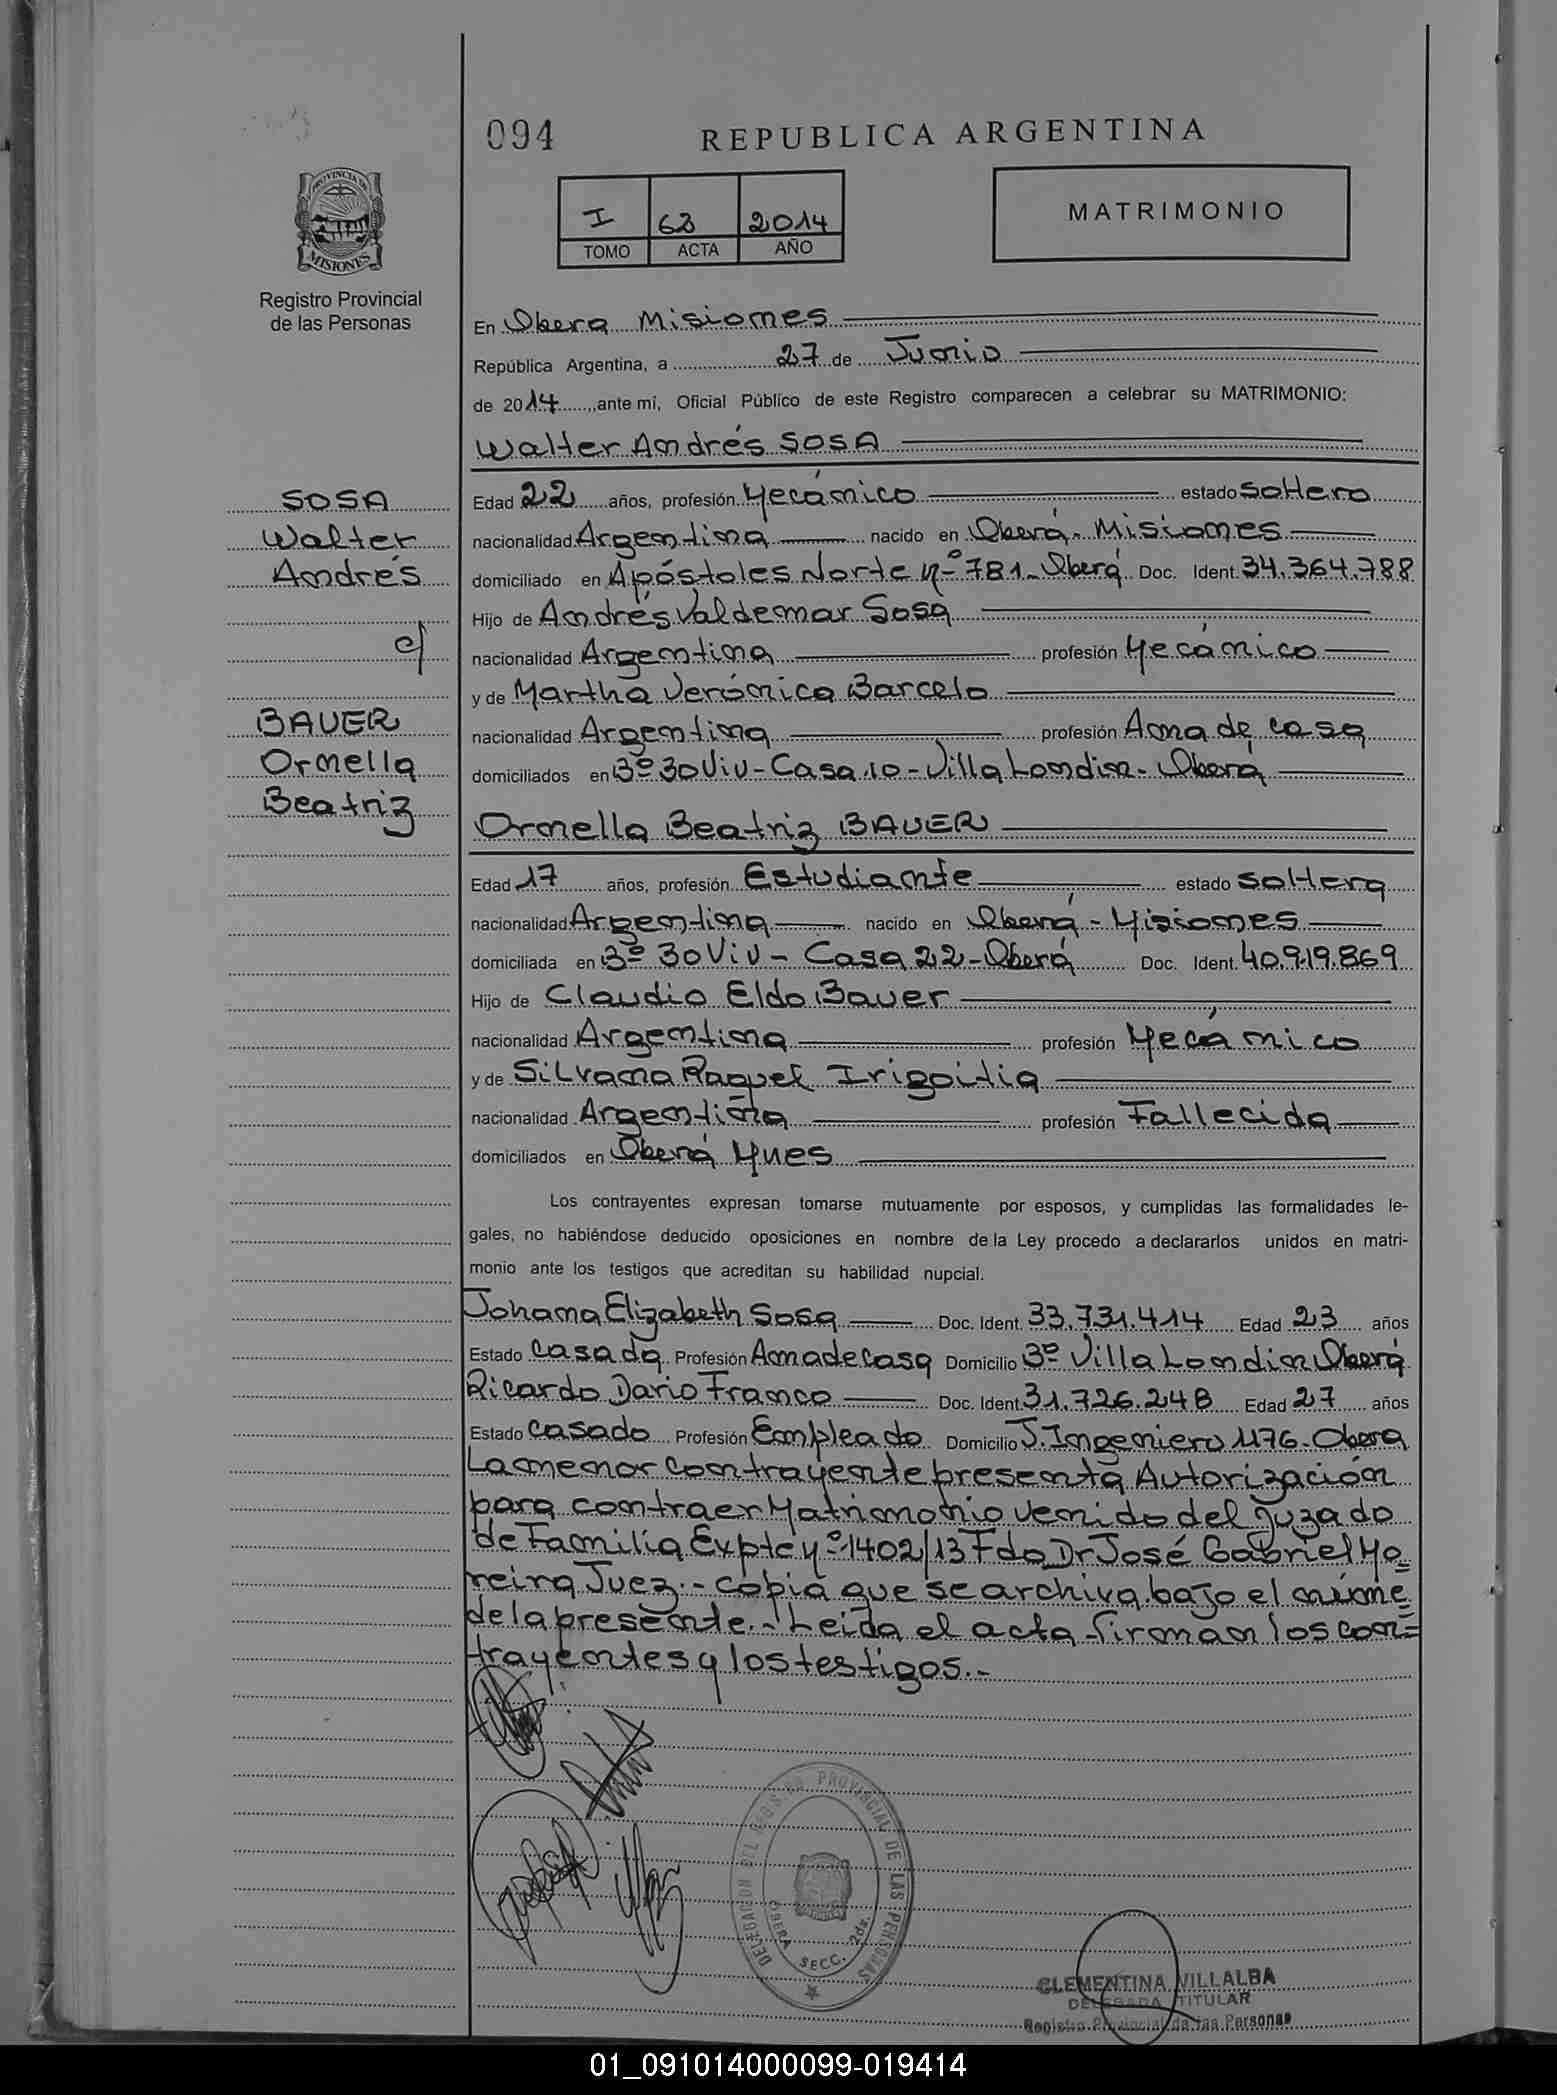 094
REPUBLICA ARGENTINA
PROVINCIA DE
MISIONES
Registro Provincial
de las Personas
I 63 2014
TOMO ACTA AÑO
MATRIMONIO
En Obera Misiones
República Argentina, a 27 de Junio
de 2014, ante mi, Oficial Público de este Registro comparecen a celebrar su MATRIMONIO:
Walter Andrés SOSA
SOSA
Walter
Andrés
c/
BAUER
Ornella
Beatriz
Edad 22 años, profesión Mecánico estado soltero
nacionalidad Argentina nacido en Oberá - Misiones
domiciliado en Apóstoles Norte Nº 781 - Oberá Doc. Ident. 34.364.788
Hijo de Andrés Valdemar Sosa
nacionalidad Argentina profesión Mecánico
y de Martha Verónica Barcelo
nacionalidad Argentina profesión Ama de casa
domiciliados en Bº 30 Viv - Casa 10 - Villa Londin - Oberá
Ornella Beatriz BAUER
Edad 17 años, profesión Estudiante estado soltera
nacionalidad Argentina nacido en Oberá - Misiones
domiciliada en Bº 30 Viv - Casa 22 - Oberá Doc. Ident. 40.919.869
Hijo de Claudio Eldo Bauer
nacionalidad Argentina profesión Mecánico
y de Silvana Raquel Irigoitia
nacionalidad Argentina profesión Fallecida
domiciliados en Oberá Mnes
Los contrayentes expresan tomarse mutuamente por esposos, y cumplidas las formalidades le-
gales, no habiéndose deducido oposiciones en nombre de la Ley procedo a declararlos unidos en matri-
monio ante los testigos que acreditan su habilidad nupcial.
Johana Elizabeth Sosa Doc. Ident. 33.731.414 Edad 23 años
Estado casada Profesión Ama de casa Domicilio Bº Villa Londin Oberá
Ricardo Dario Franco Doc. Ident. 31.726.248 Edad 27 años
Estado casado Profesión Empleado Domicilio J. Ingeniero 1176 - Obera
La menor contrayente presenta Autorización
para contraer Matrimonio venido del Juzado
de Familia Expte Nº 1402/13 Fdo Dr José Gabriel Mo=
reira Juez.- copia que se archiva bajo el núme=
de la presente.- Leida el acta firman los con=
trayentes y los testigos.-
DELEGACION DEL REGISTRO PROVINCIAL DE LAS PERSONAS
OBERA SECC. 2da.
CLEMENTINA VILLALBA
DELEGADA TITULAR
Registro Provincial de las Personas
01_091014000099-019414